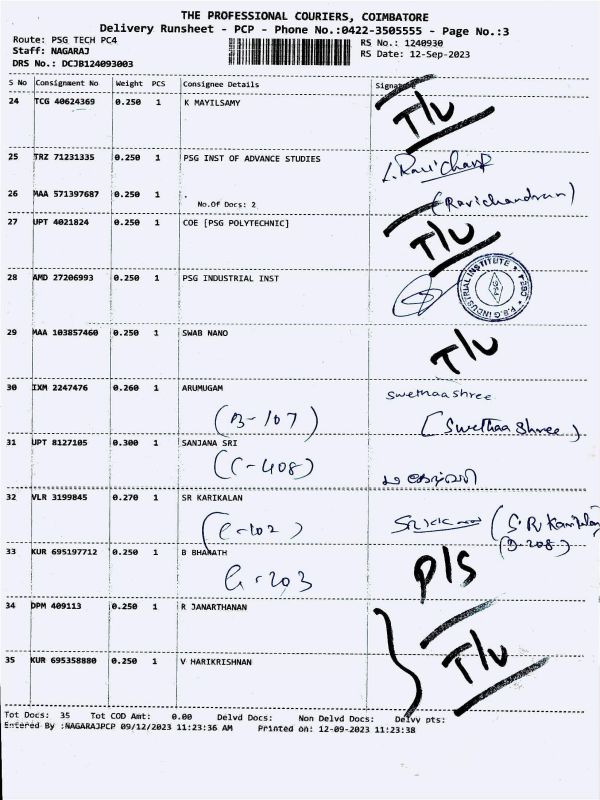 THE PROFESSIONAL COURIERS, COIMBATORE
Delivery Runsheet - PCP - Phone No.:0422-3505555 - Page No.:3
Route: PSG TECH PC4 RS No.: 1240930
Staff: NAGARAJ RS Date: 12-Sep-2023
DRS No.: DCJB124093003
S No Consignment No Weight PCS Consignee Details Signature
24 TCG 40624369 0.250 1 K MAYILSAMY T/L
25 TRZ 71231335 0.250 1 PSG INST OF ADVANCE STUDIES
26 MAA 571397687 0.250 1 . (Ravichandran)
No.Of Docs: 2
27 UPT 4021824 0.250 1 COE [PSG POLYTECHNIC] T/L
28 AMD 27206993 0.250 1 PSG INDUSTRIAL INST
P.S.G INDUSTRIAL INSTITUTE
29 MAA 103857460 0.250 1 SWAB NANO T/L
30 IXM 2247476 0.260 1 ARUMUGAM Swethaa shree
(B-107) (Swethaa shree)
31 UPT 8127105 0.300 1 SANJANA SRI
(C-408)
32 VLR 3199845 0.270 1 SR KARIKALAN
(C-102) (D-208)
33 KUR 695197712 0.250 1 B BHARATH P/S
G-203
34 DPM 409113 0.250 1 R JANARTHANAN
T/L
35 KUR 695358880 0.250 1 V HARIKRISHNAN
Tot Docs: 35 Tot COD Amt: 0.00 Delvd Docs: Non Delvd Docs: Delvy pts:
Entered By :NAGARAJPCP 09/12/2023 11:23:36 AM Printed on: 12-09-2023 11:23:38